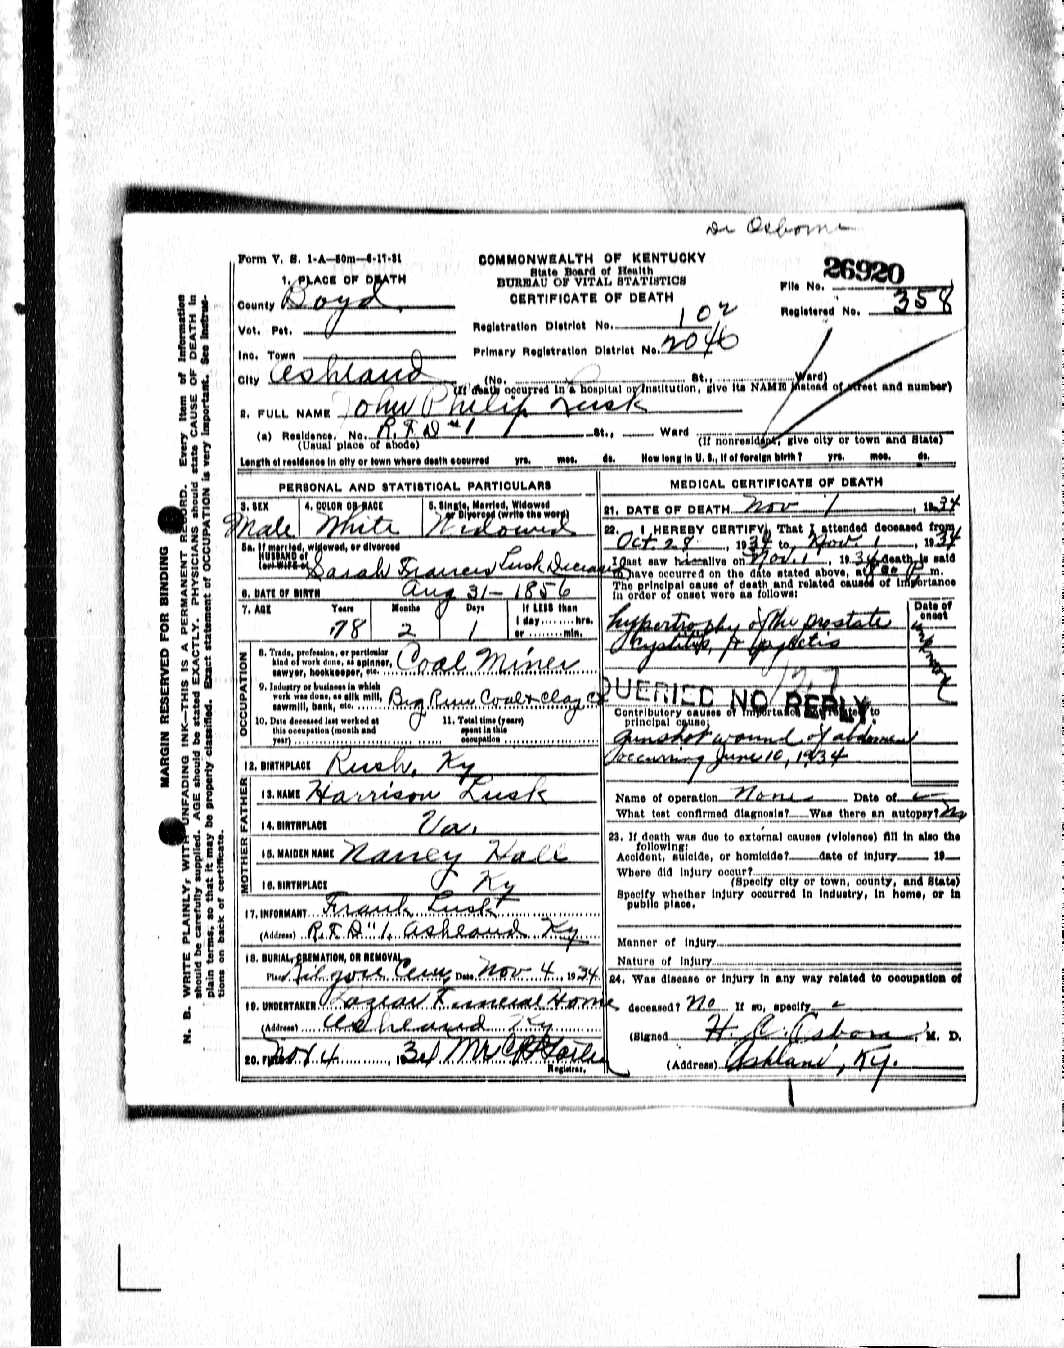 Dr Osborne
Form V. S. 1-A—50m—6-17-31
COMMONWEALTH OF KENTUCKY
State Board of Health
BUREAU OF VITAL STATISTICS
CERTIFICATE OF DEATH
26920
File No.
Registered No. 358
1. PLACE OF DEATH
County Boyd
Vot. Pct.
Inc. Town
City Ashland (No. St., Ward)
Registration District No. 102
Primary Registration District No. 2046
(If death occurred in a hospital or institution, give its NAME instead of street and number)
2. FULL NAME John Philip Lusk
(a) Residence. No. R.F.D #1 St., Ward
(Usual place of abode)
(If nonresident, give city or town and State)
Length of residence in city or town where death occurred yrs. mos. ds. How long in U. S., if of foreign birth? yrs. mos. ds.
PERSONAL AND STATISTICAL PARTICULARS
3. SEX Male
4. COLOR OR RACE White
5. Single, Married, Widowed or Divorced (write the word) Widowed
5a. If married, widowed, or divorced
HUSBAND of
(or) WIFE of Sarah Frances Lusk Deceased
6. DATE OF BIRTH Aug 31- 1856
7. AGE Years Months Days If LESS than
78 2 1 1 day hrs.
or min.
OCCUPATION
8. Trade, profession, or particular
kind of work done, as spinner,
sawyer, bookkeeper, etc. Coal Miner
9. Industry or business in which
work was done, as silk mill,
sawmill, bank, etc. Big Run Coal & Clay Co
10. Date deceased last worked at
this occupation (month and
year)
11. Total time (years)
spent in this
occupation
12. BIRTHPLACE Rush, Ky
FATHER
13. NAME Harrison Lusk
14. BIRTHPLACE Va.
MOTHER
15. MAIDEN NAME Nancy Hall
16. BIRTHPLACE Ky
17. INFORMANT Frank Lusk
(Address) R.F.D "1. Ashland Ky
18. BURIAL, CREMATION, OR REMOVAL
Place Kilgore Cem Date Nov 4, 1934
19. UNDERTAKER Lazear Funeral Home
(Address) Ashland Ky
20. FILED Nov 4, 1934
Registrar.
MEDICAL CERTIFICATE OF DEATH
21. DATE OF DEATH Nov 1, 1934
22. I HEREBY CERTIFY, That I attended deceased from
Oct. 28, 1934 to Nov. 1, 1934
I last saw him alive on Nov. 1, 1934 death is said
to have occurred on the date stated above, at m.
The principal cause of death and related causes of importance
in order of onset were as follows:
Date of
onset
unknown
hypertrophy of the prostate
Cystitis,
137
QUERIED NO REPLY
Contributory causes of importance not related to
principal cause:
Gunshot wound of abdomen
occurring June 10, 1934
Name of operation None Date of
What test confirmed diagnosis? Was there an autopsy? No
23. If death was due to external causes (violence) fill in also the
following:
Accident, suicide, or homicide? date of injury 19
Where did injury occur?
(Specify city or town, county, and State)
Specify whether injury occurred in industry, in home, or in
public place.
Manner of injury
Nature of injury
24. Was disease or injury in any way related to occupation of
deceased? No If so, specify
(Signed H. C. Osborn, M. D.
(Address) Ashland, Ky.
MARGIN RESERVED FOR BINDING
N. B. WRITE PLAINLY, WITH UNFADING INK—THIS IS A PERMANENT RECORD. Every item of information
should be carefully supplied. AGE should be stated EXACTLY. PHYSICIANS should state CAUSE OF DEATH in
plain terms, so that it may be properly classified. Exact statement of OCCUPATION is very important. See instruc-
tions on back of certificate.